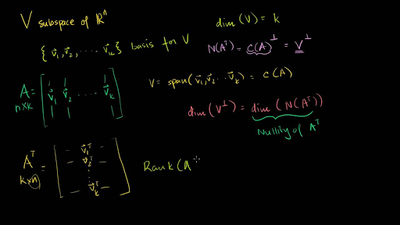 V subspace of ℝⁿ
{v⃗₁, v⃗₂, ... v⃗ₖ} basis for V
A = [v⃗₁ v⃗₂ ... v⃗ₖ]
n×k
Aᵀ = [v⃗₁ᵀ v⃗₂ᵀ ⋮ v⃗ₖᵀ]
k×n
dim(V) = k
N(Aᵀ) = C(A)^⊥ = V^⊥
V = span(v⃗₁, v⃗₂ ... v⃗ₖ) = C(A)
dim(V^⊥) = dim(N(Aᵀ))
Nullity of Aᵀ
Rank(A